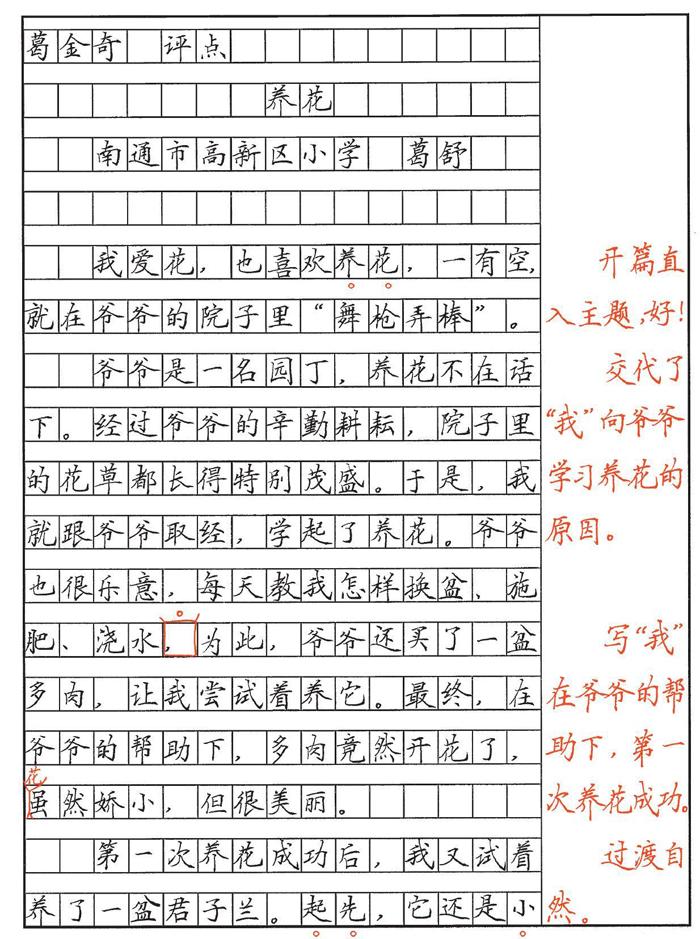 葛金奇 评点
养花
南通市高新区小学 葛舒
我爱花，也喜欢养花，一有空，
就在爷爷的院子里“舞枪弄棒”。
爷爷是一名园丁，养花不在话
下。经过爷爷的辛勤耕耘，院子里
的花草都长得特别茂盛。于是，我
就跟爷爷取经，学起了养花。爷爷
也很乐意，每天教我怎样换盆、施
肥、浇水，为此，爷爷还买了一盆
多肉，让我尝试着养它。最终，在
爷爷的帮助下，多肉竟然开花了，
花
虽然娇小，但很美丽。
第一次养花成功后，我又试着
养了一盆君子兰。起先，它还是小
开篇直
入主题，好！
交代了
“我”向爷爷
学习养花的
原因。
写“我”
在爷爷的帮
助下，第一
次养花成功。
过渡自
然。